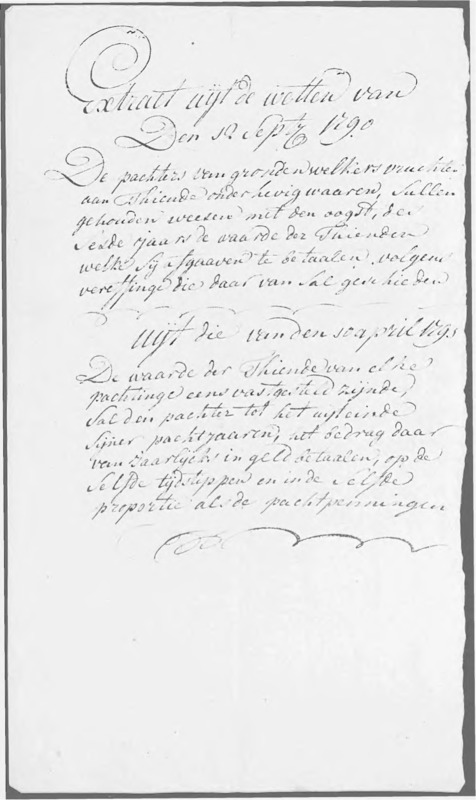 Extract uijt de wetten van
Den 12 Septb 1790
De pachters van gronden welkers vruchten
aan Thiende onderhevig waaren, sullen
gehouden weesen met den oogst, des
selfde jaars de waarde der Thienden
welke sij afgaaven te betaalen, volgens
vereffinge die daar van sal geschieden
uijt die vanden 10 april 1791
De waarde der Thiende van elke
pachtinge eens vastgesteld zijnde,
sal den pachter tot het uijteinde
sijner pachtjaaren, het bedrag daar
van Jaarlijcks in geld betaalen, op de
selfde tijdstippen en inde selfde
proportie als de pachtpenningen